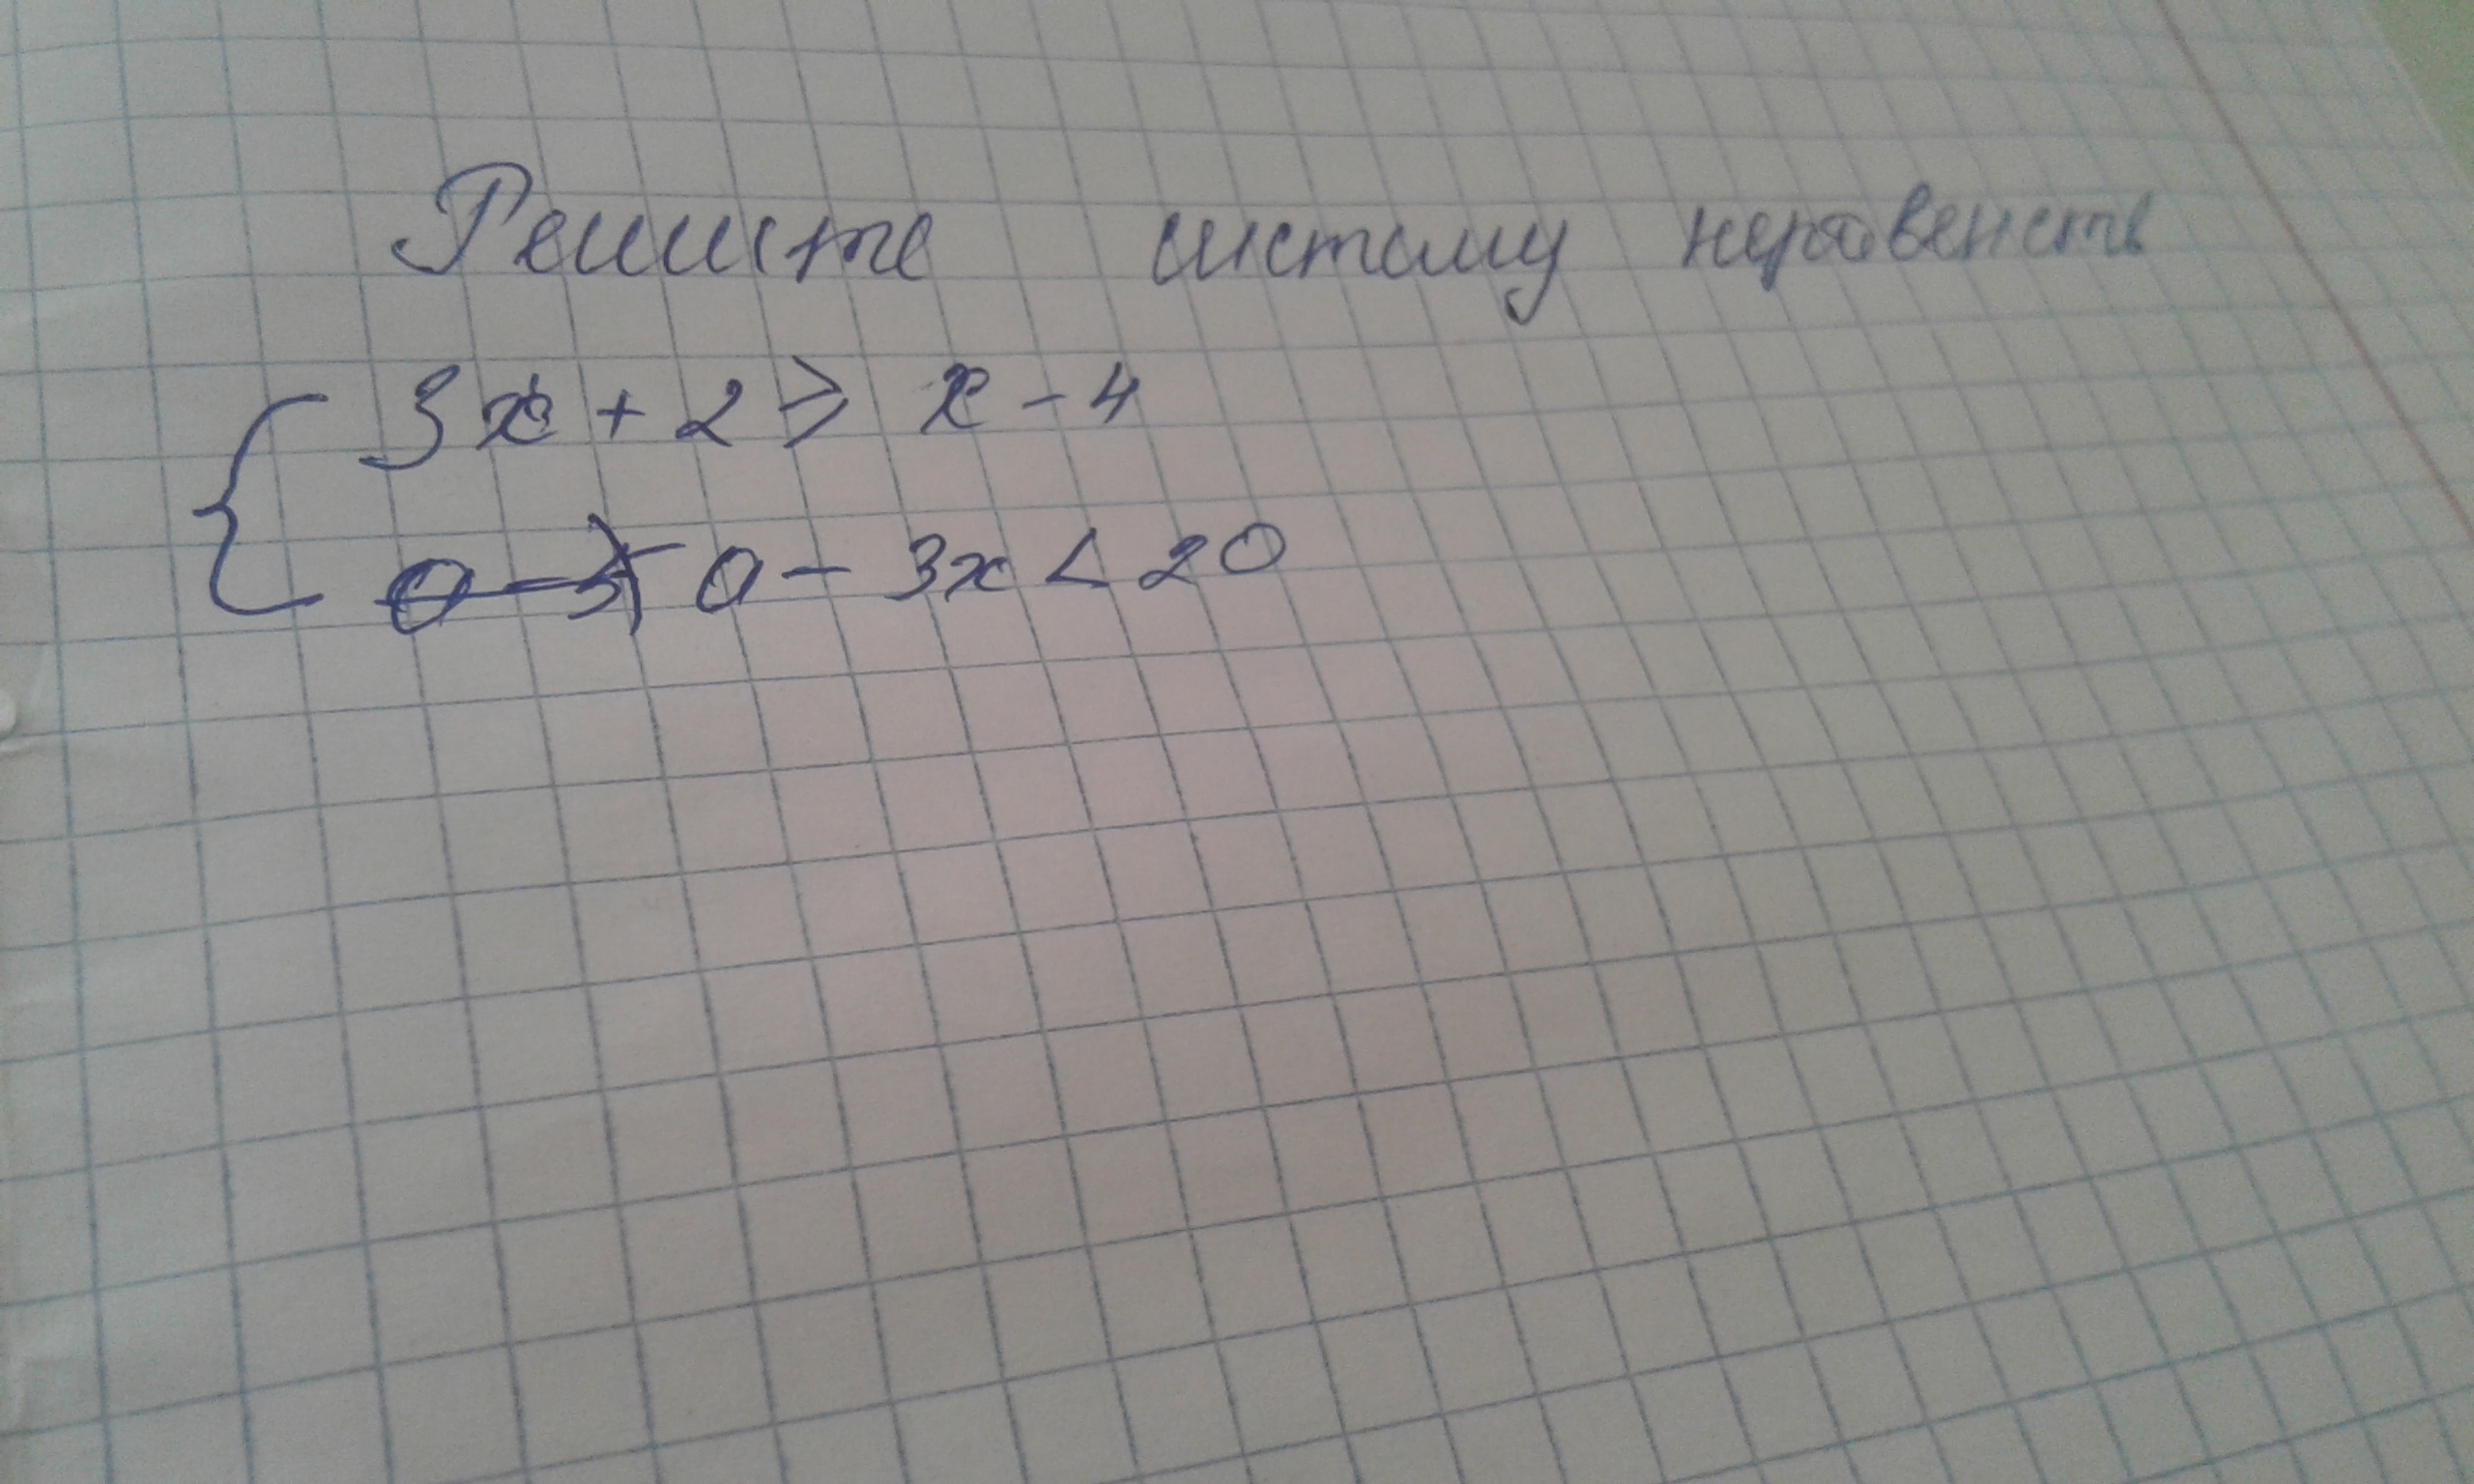 Решите систему неравенств
3x + 2 ⩾ x - 4
0 - 3x < 20